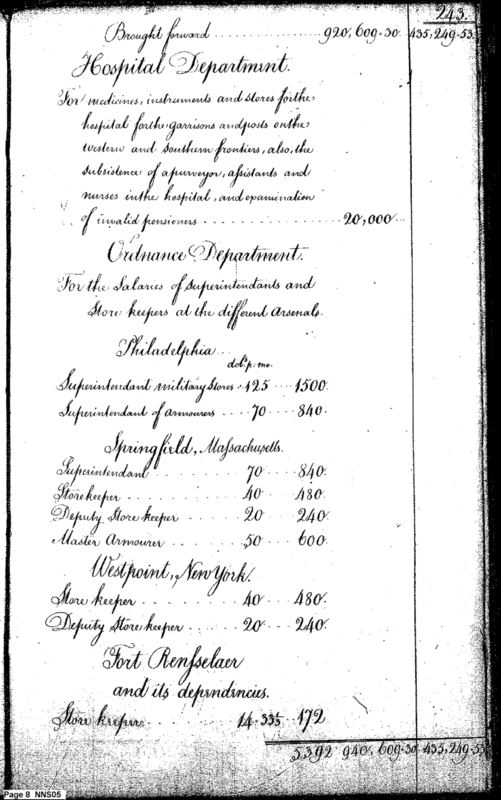 243.
Brought forward .......... 920,609.30. 435,249.53
Hospital Department.
For medicines, instruments and stores for the
hospital for the garrisons and posts on the
western and southern frontiers, also, the
subsistence of a purveyor, assistants and
nurses in the hospital, and examination
of invalid pensioners .......... 20,000
Ordnance Department.
For the Salaries of Superintendants and
Store keepers at the different Arsenals.
Philadelphia
dols. p. mo.
Superintendant military Stores . 125 .... 1500.
Superintendant of armourers .... 70 .... 840.
Springfield, Massachusetts.
Superintendant ........ 70 .... 840.
Store keeper ........ 40 .... 480.
Deputy Store keeper ...... 20 .... 240.
Master Armourer ...... 50 .... 600.
Westpoint, New York.
Store keeper ...... 40 .... 480.
Deputy Store keeper ...... 20 .... 240.
Fort Rensselaer
and its dependencies.
Store keeper ........ 14.335 .. 172
5392 940,609.30 435,249.53
Page 8 NNS05